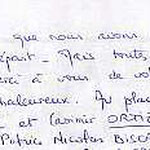 que nous avons
départ - Mais toutes
merci à vous de vo
chaleureux. Au plai
et Casimir ORTIZ
Patrice Nicolas BISC